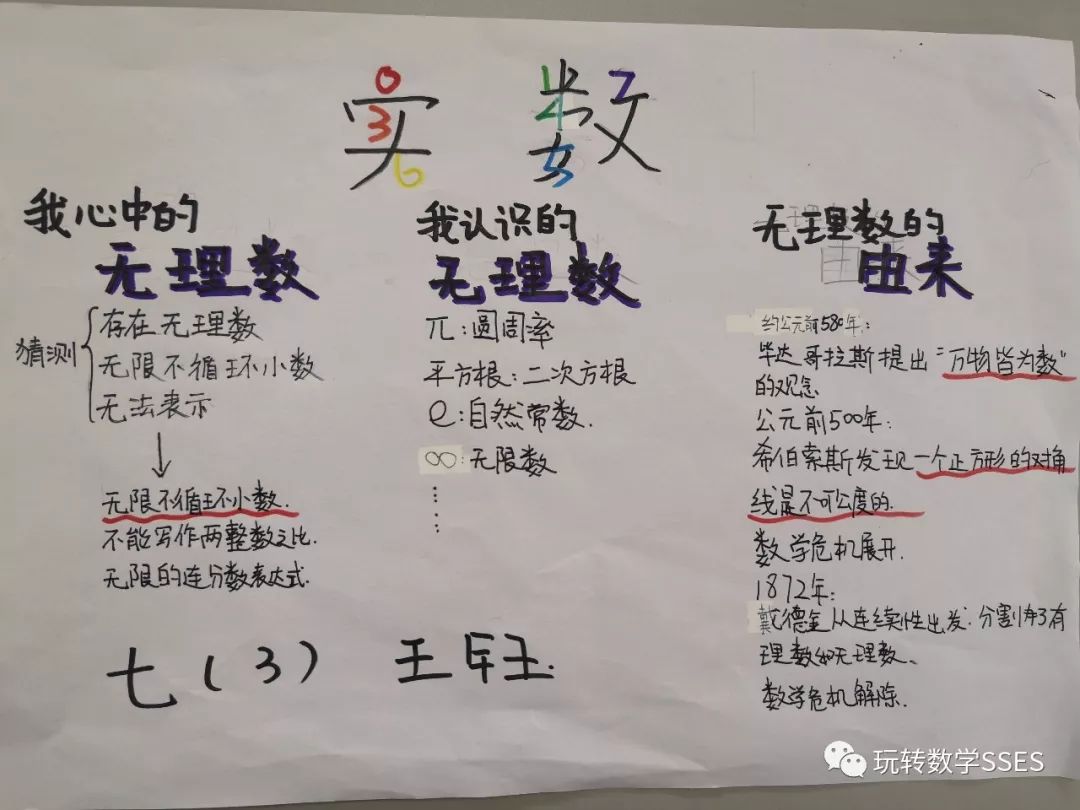 实 数
我心中的
无理数
猜测
存在无理数
无限不循环小数
无法表示
无限不循环小数.
不能写作两整数之比.
无限的连分数表达式.
我认识的
无理数
π:圆周率
平方根:二次方根
e:自然常数.
∞:无限数
无理数的
由来
约公元前580年:
毕达哥拉斯提出“万物皆为数”
的观念
公元前500年:
希伯索斯发现一个正方形的对角
线是不可公度的.
数学危机展开.
1872年:
戴德金从连续性出发.分割有
理数如无理数、
数学危机解除.
七(3) 王
玩转数学SSES